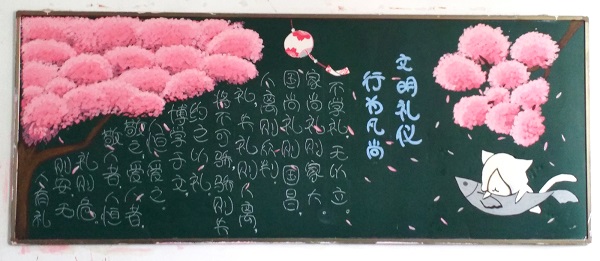 文明礼仪
行为风尚
人有礼
则安，无
礼则危。
敬人恒
敬之。爱人者，
恒爱之。
博学于文，
约之以礼
不可骄，骄则失
礼，失礼则人离，
人离则叛。
国尚礼则国昌。
家尚礼则家大。
不学礼，无以立。